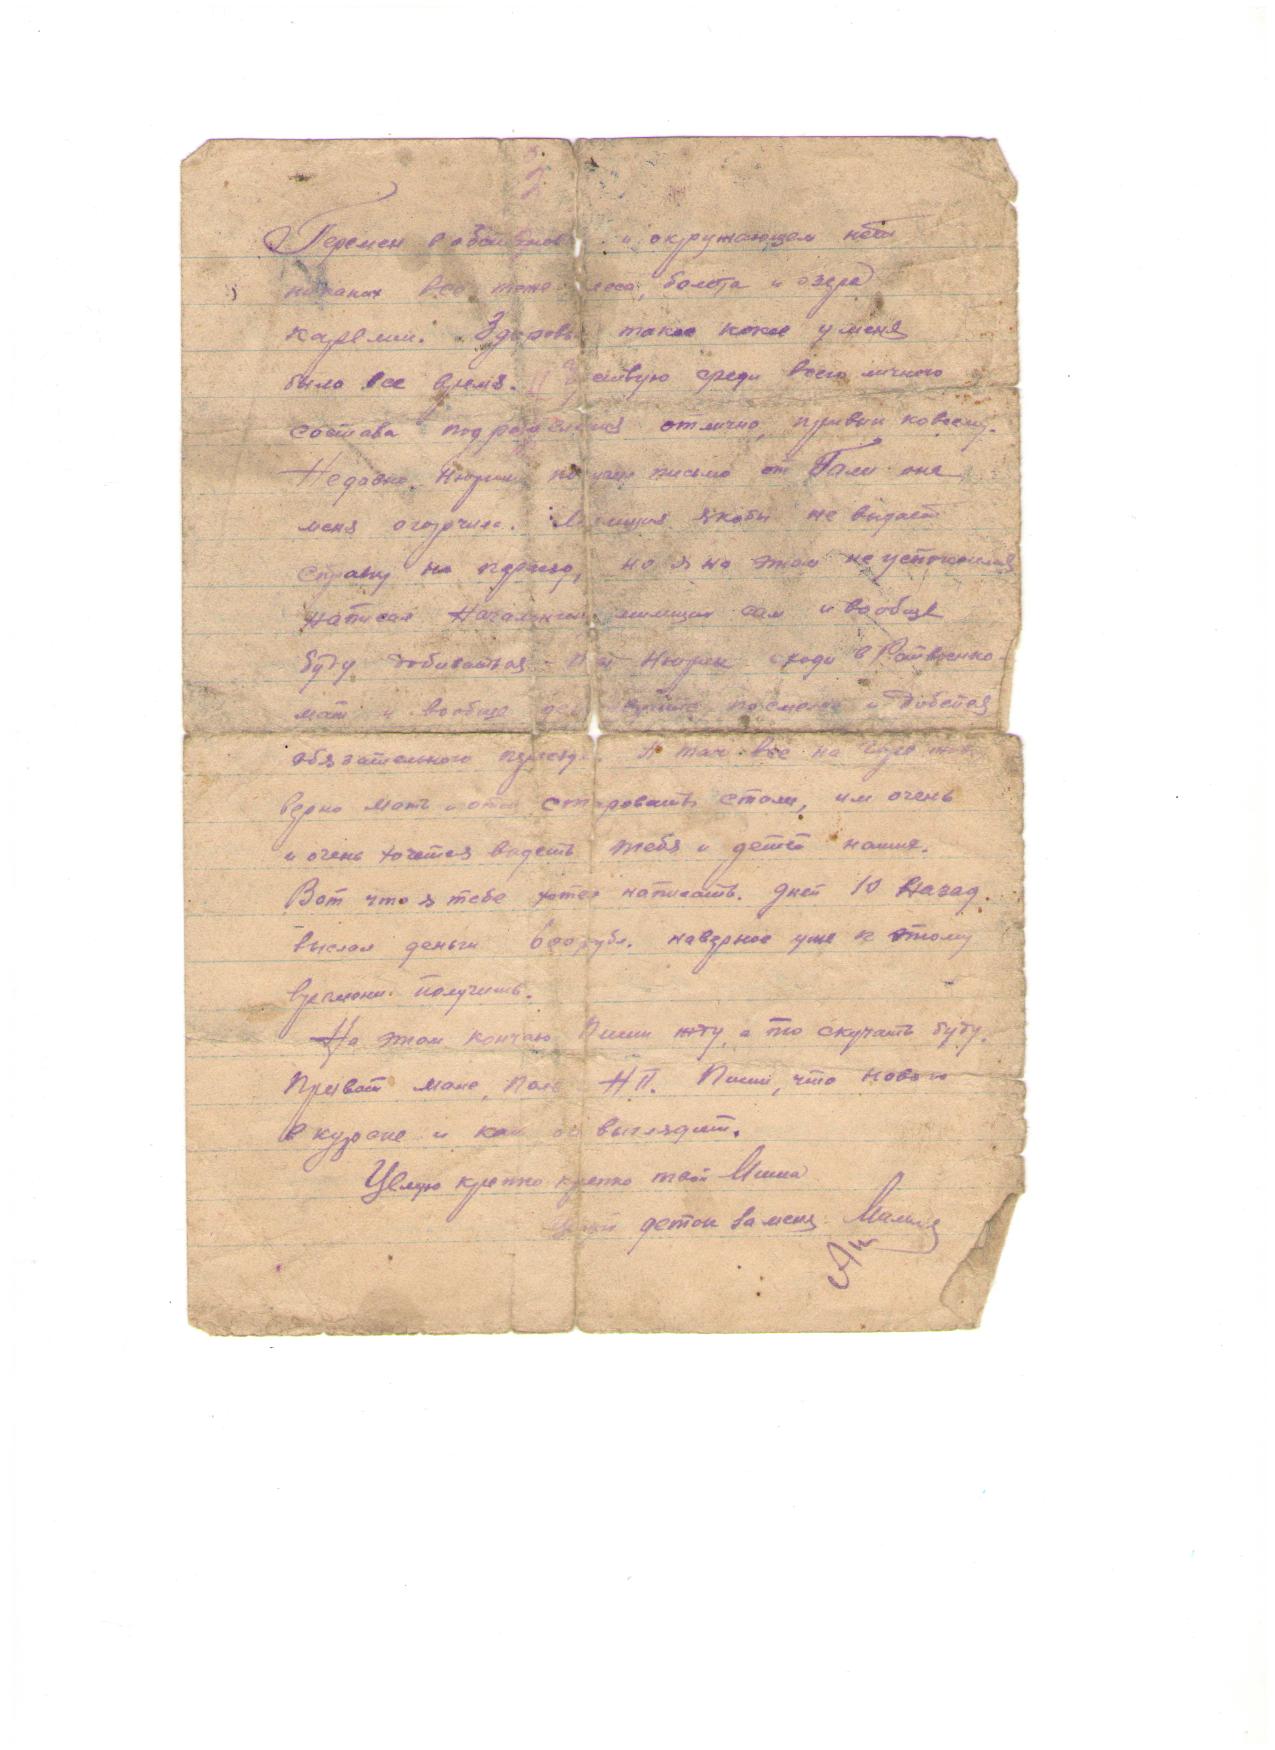 Перемен в обстановке и окружающем нет
никаких все тоже леса, болота и озера
карелии. Здоровье такое какое у меня
было все время. Чувствую среди всего личного
состава подразделения отлично, привык ковсему.
Недавно Нюрик получил письмо от Гали она
меня огорчила. Милиция якобы не выдает
справку на переезд, но я на этом не успокоился
написал Начальнику милиции сам и вообще
буду добиваться Нюрик сходи в Райвоенко-
мат и вообще посмелей и добейся
обязательного переезда. А так все на
верно мать и отец стороваты стали, им очень
и очень хочется видеть тебя и детей наших.
Вот что я тебе хотел написать. дней 10 Назад
выслал деньги 600 рубл. наверное уже к этому
времени получишь.
На этом кончаю Пиши жду, а то скучать буду.
Привет маме, Поле НП. Пиши, что нового
в и как выглядит.
Целую крепко крепко твой Миша
Целуй деток за меня.